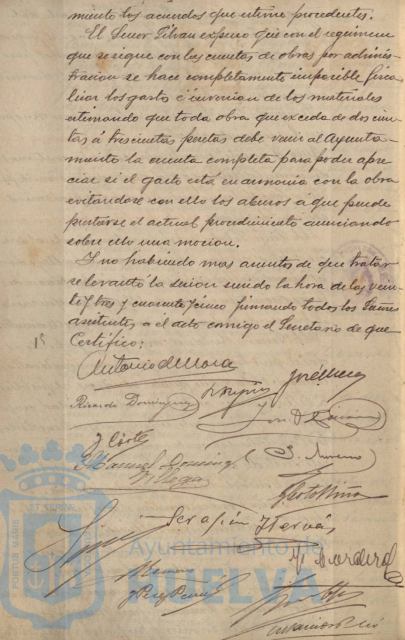 miento los acuerdos que estime procedentes.
El Señor Tilvan expuso que con el regimen
que se sigue con las cuentas de obras por adminis-
tracion se hace completamente imposible fisca-
lizar los gastos é inversion de los materiales
estimando que toda obra que exceda de dos cien-
tas á trescientas pesetas debe venir al Ayunta-
miento la cuenta completa para poder apre-
ciar si el gasto está en armonia con la obra
evitandose con ello los abusos a que puede
prestarse el actual procedimiento anunciando
sobre ello una mocion.
Y no habiendo mas asuntos de que tratar
se levantó la sesion siendo la hora de las vein-
te y tres y cuarenta y cinco firmando todos los Señores
asistentes a el acto comigo el Secretario de que
Certifico:
Antonio de Mora
Ricardo Dominguez
J Cortés
Manuel Dominguez
S. Moreno
Serafin Hervás
Ayuntamiento de
HUELVA